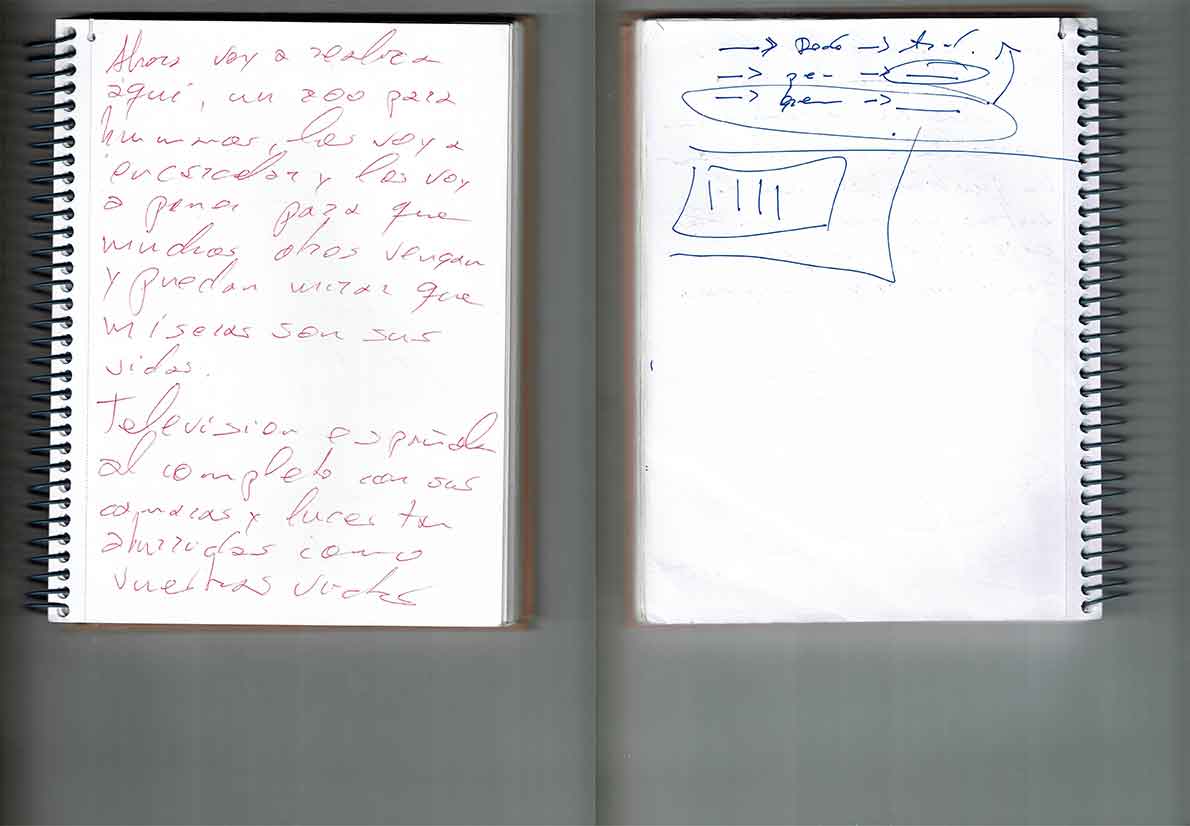 Ahora voy a realiza
aquí, un zoo para
hummnos, los voy a
encerrador y los voy
a poner para que
muchos otros vengan
y puedan mirar que
miserias son sus
vidas.
Televisión española
al completo con sus
camaras y luces tan
aburridas como
vuestras vidas